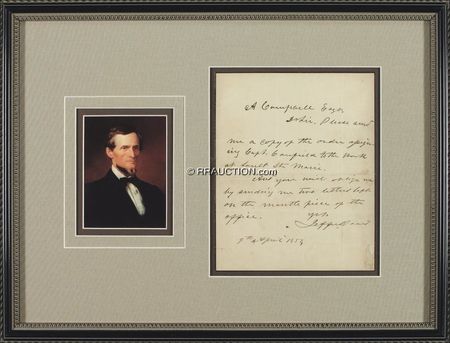 A Campbell Esqr
Dr Sir. Please send
me a copy of the order assign
ing Capt. Canfield to the work
at Sault Ste Marie.
And you will oblige me
by sending me two letters left
on the mantle piece of the
office.
yrs
Jeffn Davis
7th April 1854
© RRAUCTION.com